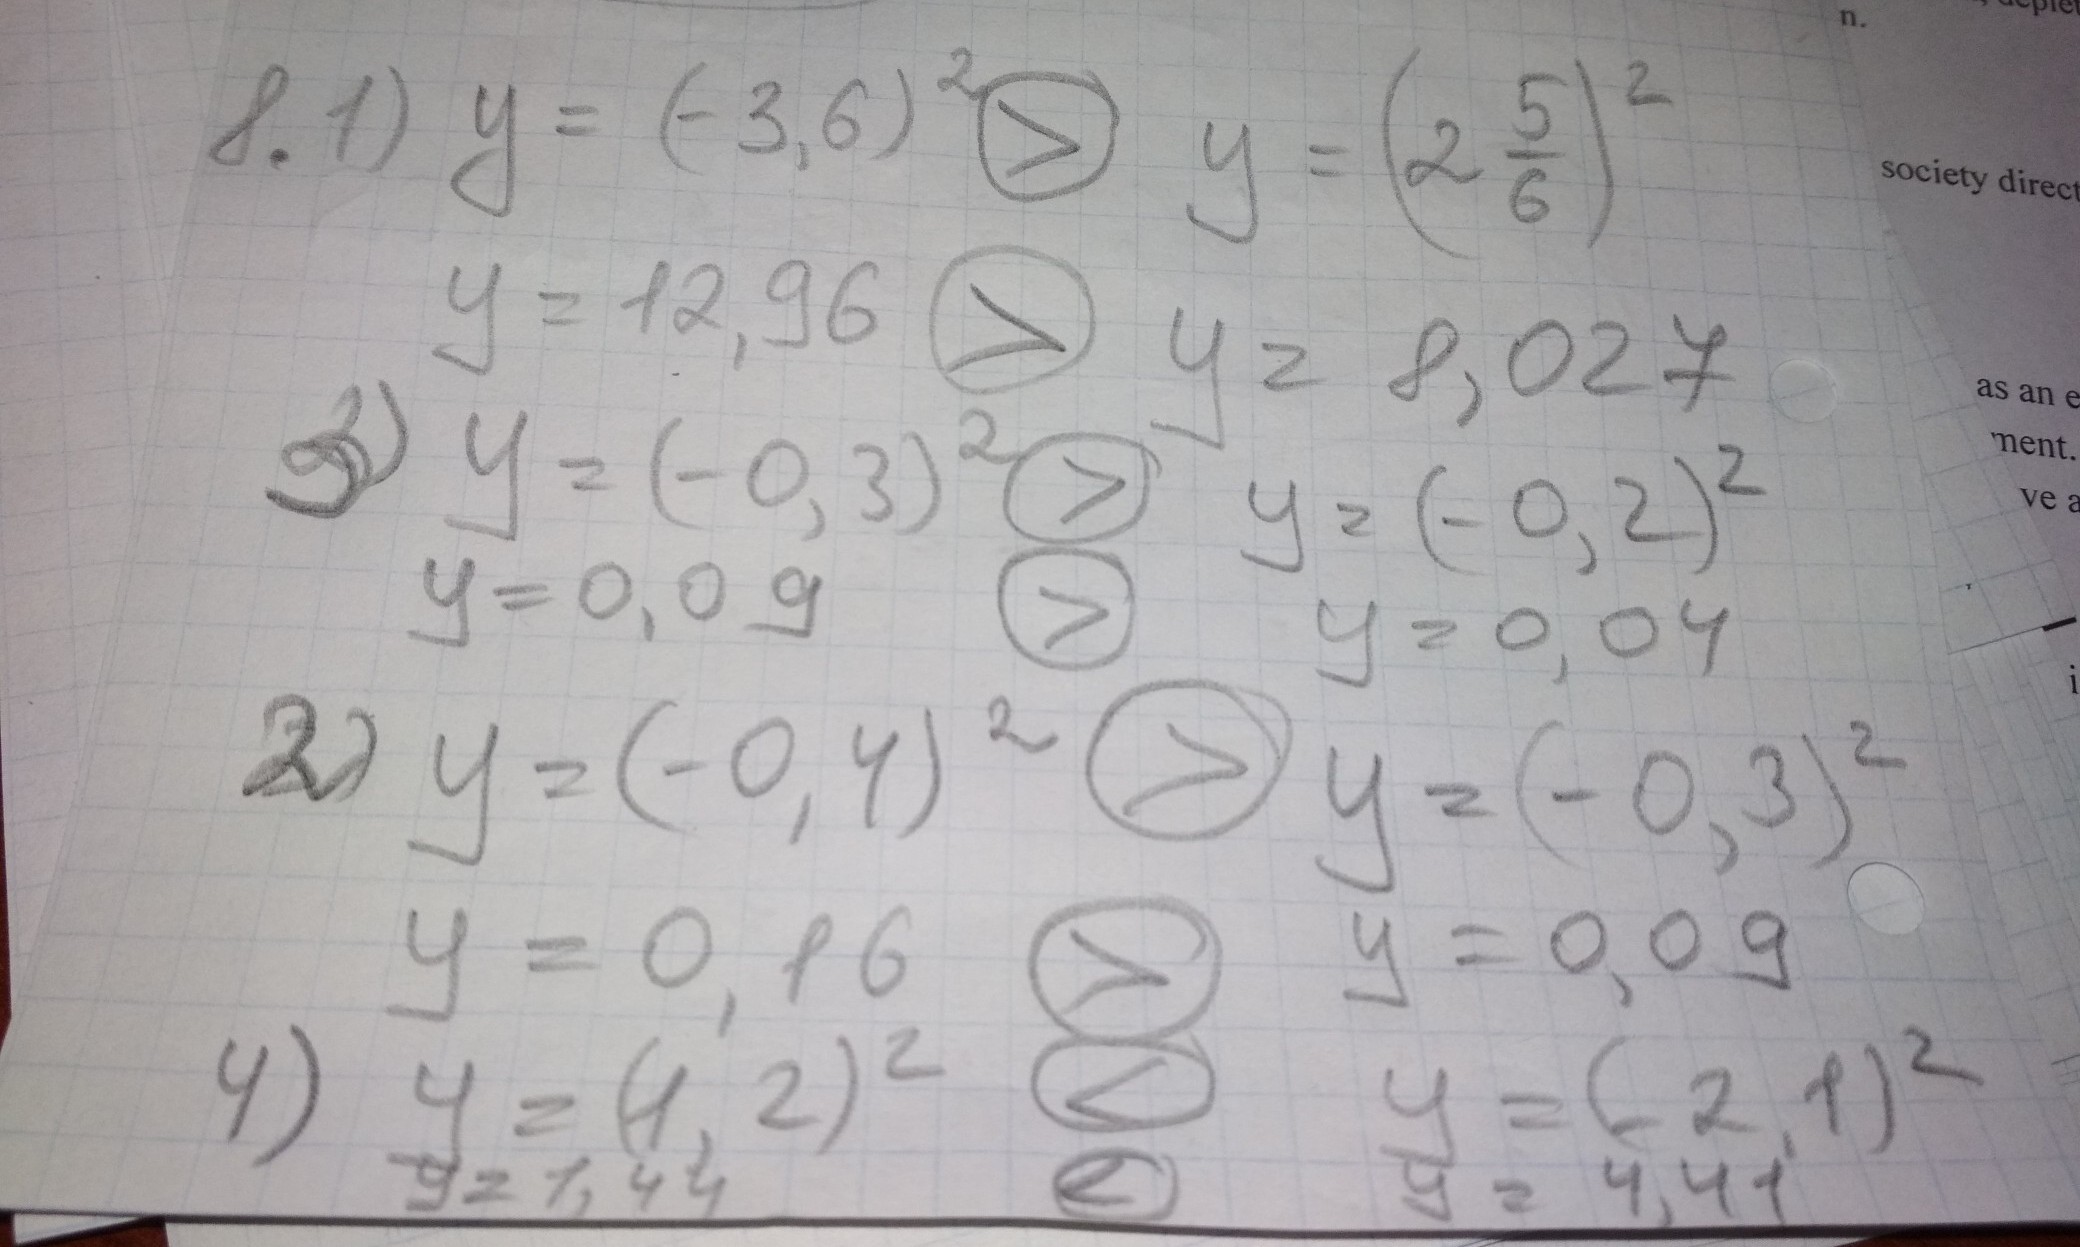 8.1) y = (-3,6)² > y = (2 5/6)²
y = 12,96 > y = 8,027
3) y = (-0,3)² > y = (-0,2)²
y = 0,09 > y = 0,04
2) y = (-0,4)² > y = (-0,3)²
y = 0,16 > y = 0,09
4) y = (1,2)² < y = (-2,1)²
y = 1,44 < y = 4,41
n.
society direct
as an e
ment.
ve a
i